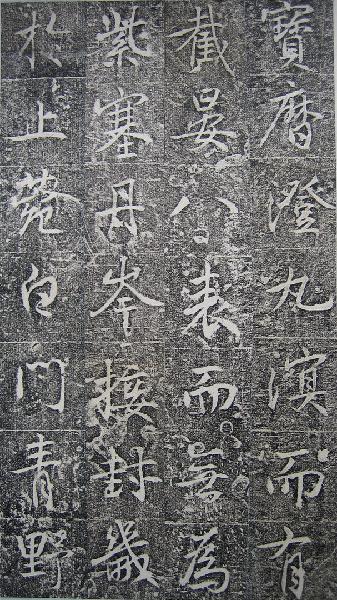 寶曆澄九溟而有
截晏八表而無為
紫塞丹岑接封畿
於上菀白門青野